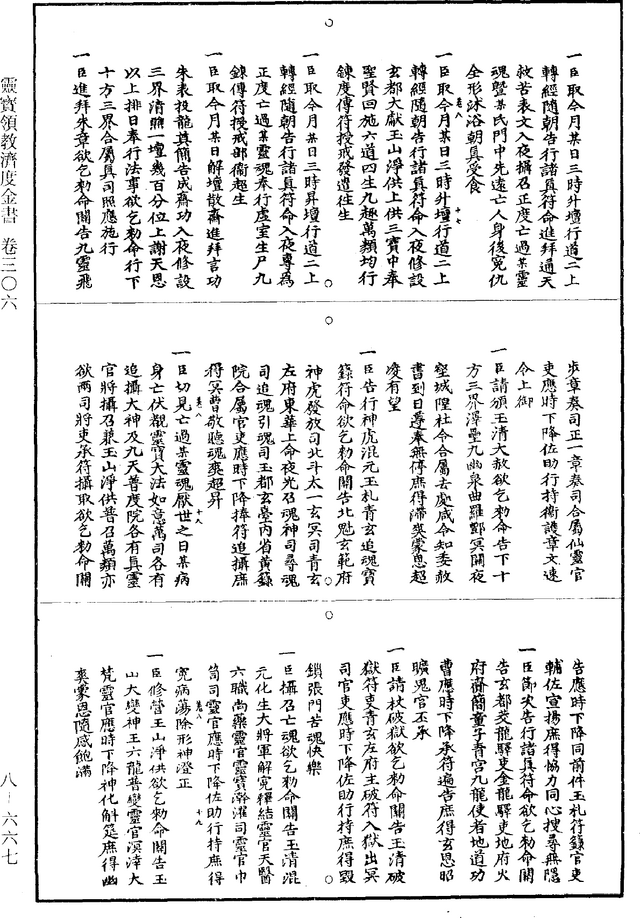 靈寶領教濟度金書 卷三〇六
八-六六七
一臣取今月某日三時外壇行道二上
轉經隨朝告行諸真符命進拜通天
救苦表文入夜攝召正度亡過某靈
魂暨某氏門中先遠亡人身後冤仇
全形沐浴朝真受食
卷八 十七
一臣取今月某日三時外壇行道二上
轉經隨朝告行諸真符命入夜修設
玄都大獻玉山淨供上供三寶中奉
聖賢回施六道四生九趣萬類均行
鍊度傳符授戒發遣往生
一臣取今月某日三時昇壇行道二上
轉經隨朝告行諸真符命入夜專為
正度亡過某靈魂奉行虛室生尸九
鍊傳符授戒部衛超生
一臣取今月某日解壇散齋進拜言功
朱表投龍真簡告成齋功入夜修設
三界清醮一壇幾百分位上謝天恩
以上排日奉行法事欲乞勑命行下
十方三界合屬真司照應施行
一臣進拜朱章欲乞勑命關告九靈飛
步章奏司正一章奏司合屬仙靈官
吏應時下降佐助行持衛護章文速
令上御
一臣請頒玉清大赦欲乞勑命告下十
方三界澤壘九幽泉曲羅酆冥關夜
壑城隍社令合屬去處咸令知委赦
書到日遵奉無停庶得滯爽蒙恩超
凌有望
一臣告行神虎混元玉札青玄追魂寶
籙符命欲乞勑命關告北魁玄範府
神虎發放司北斗太一玄冥司青玄
左府東華上命夜光召魂神司尋魂
司追魂引魂司玉都玄臺內省黃籙
院合屬官吏應時下降捧符追攝庶
得冥曹敬聽魂爽超昇
卷八 十八
一臣切見亡過某靈魂厭世之日某病
身亡伏觀靈寶大法如意萬司各有
追攝大神及九天普度院各有真靈
官將攝召兼玉山淨供普召萬類亦
欲兩司將吏承符攝取欲乞勑命關
告應時下降同前件玉札符籙官吏
輔佐宣揚庶得協力同心搜尋無隱
一臣節次告行諸真符命欲乞勑命關
告玄都茭龍驛吏金龍驛吏地府火
府齋簡童子青宮九龍使者地道功
曹應時下降承符遍告庶得玄恩昭
曠鬼官丕承
一臣請杖破獄欲乞勑命關告玉清破
獄符吏青玄左府主破符入獄出冥
司官吏應時下降佐助行持庶得毀
鎖張門苦魂快樂
一臣攝召亡魂欲乞勑命關告玉清混
元化生大將軍解冤釋結靈官天醫
六職尚藥靈官靈寶澣濯司靈官巾
笥司靈官應時下降佐助行持庶得
卷八 十九
冤病蕩除形神澄正
一臣修營玉山淨供欲乞勑命關告玉
山大變神王六龍普變靈官溟涬大
梵靈官應時下降神化斛筵庶得幽
爽蒙恩隨感飽滿